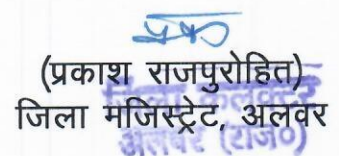 (प्रकाश राजपुरोहित)
जिला मजिस्ट्रेट, अलवर
अलवर (राज०)